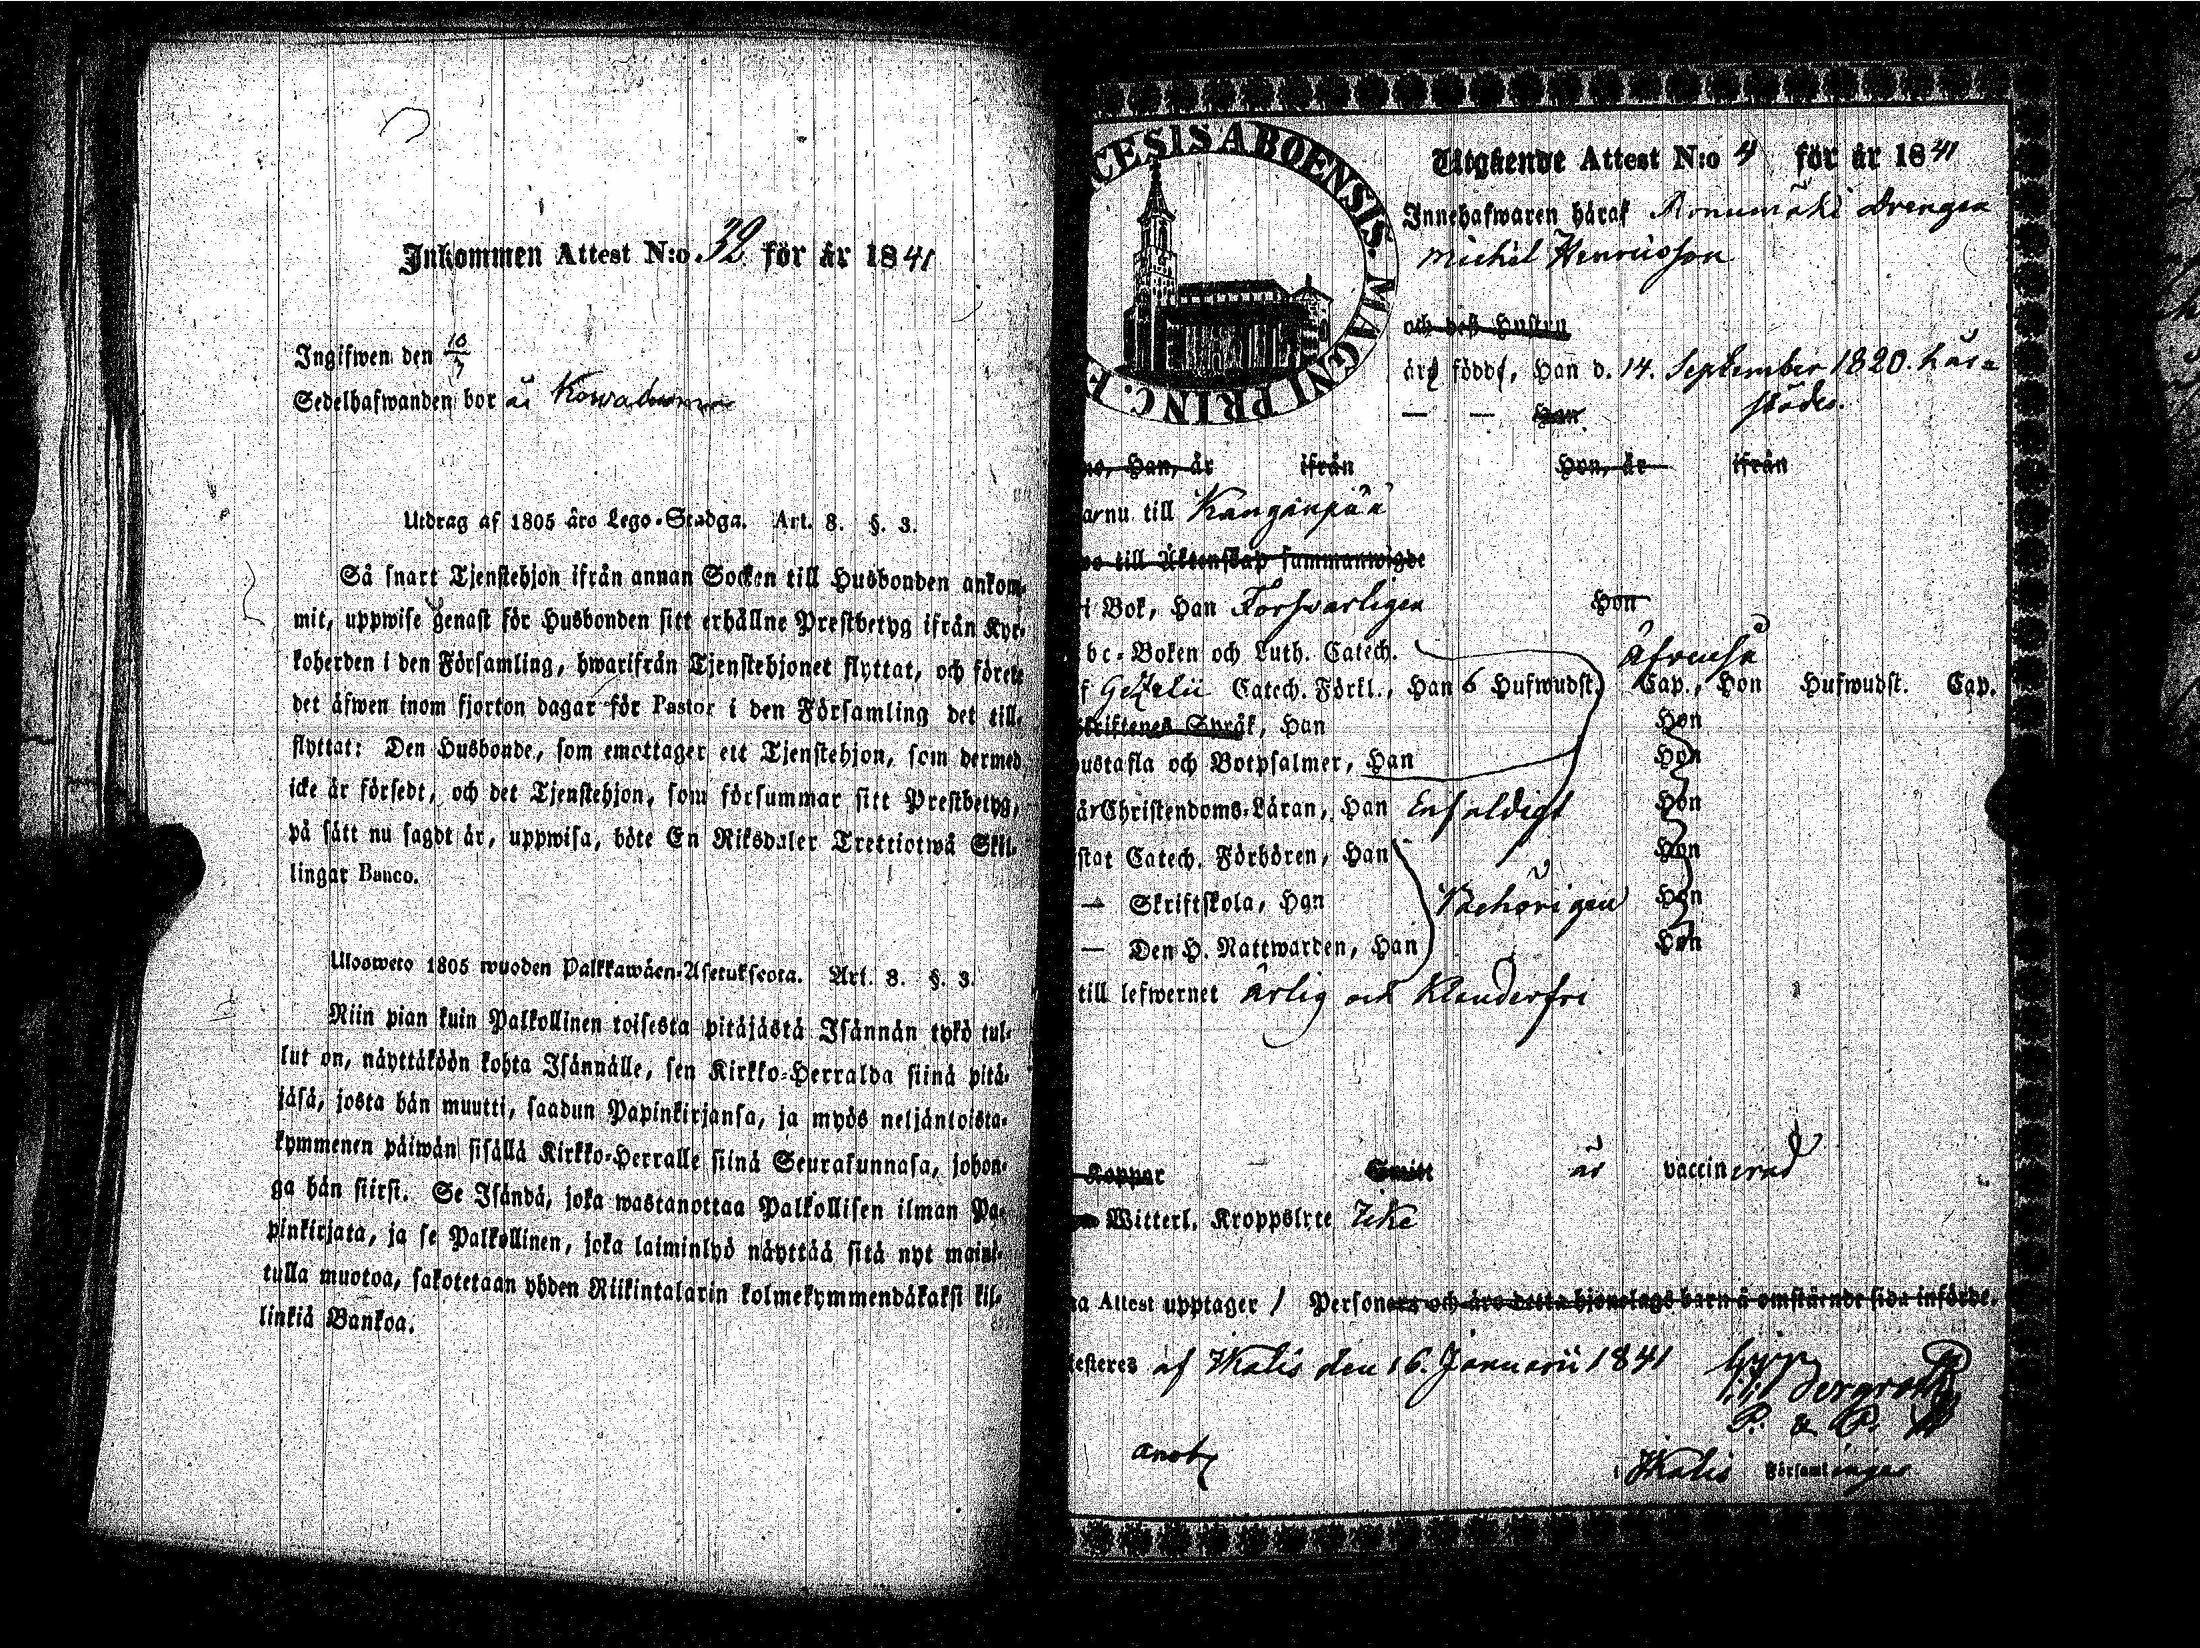 Inkommen Attest N:o 32 för år 1841
Ingifwen den 10/7
Sedelhafwanden bor å
Utdrag af 1805 åro Lego-Stadga. Art. 8. §. 3.
Så snart Tjenstehjon ifrån annan Socken till Husbonden ankom-
mit, uppwise genast för Husbonden sitt erhållne Prestbetyg ifrån Kyr-
koherden i den Församling, hwarifrån Tjenstehjonet flyttat, och förete
det äfwen inom fjorton dagar för Pastor i den Församling det till-
flyttat: Den Husbonde, som emottager ett Tjenstehjon, som dermed
icke är försedt, och det Tjenstehjon, som försummar sitt Prestbetyg,
på sätt nu sagdt är, uppwisa, böte En Riksdaler Trettiotwå Skil-
lingar Banco.
Ulosweto 1805 wuoden Palkkawäen-Asetuksesta. Art. 8. §. 3.
Niin pian kuin Palkollinen toisesta pitäjästä Isännän tykö tul-
lut on, näyttäköön kohta Isännälle, sen Kirkko-Herralda siinä pitä-
jäsä, josta hän muutti, saadun Papinkirjansa, ja myös neljäntoista-
kymmenen päiwän sisällä Kirkko-Herralle siinä Seurakunnasa, johon-
ga hän siirsi. Se Isändä, joka wastanottaa Palkollisen ilman Pa-
pinkirjata, ja se Palkollinen, joka laiminlyö näyttää sitä nyt maini-
tulla muotoa, sakotetaan yhden Riikintalarin kolmekymmendäkaksi kil-
linkiä Bankoa.
CESIS ABOENSIS. MAGNI PRINC. F
Utgående Attest N:o 4 för år 1841
Innehafwaren häraf Drengen
Michel Henricsson
och dess Hustru
äro födde, Han d. 14. September 1820. här-
städes.
— — Hon
no, Han, är ifrån Hon, är ifrån
ar nu till Kangänpää
till Äktenskap sammanwigde
i Bok, Han Forsvarligen Hon
bc-Boken och Luth. Catech.
f Gezelii Catech. Förkl., Han 6 Hufwudst. Cap., Hon Hufwudst. Cap.
Skriftenes Språk, Han Hon
ustafla och Botpsalmer, Han Hon
är Christendoms-Läran, Han Enfaldigt Hon
istat Catech. Förhören, Han Hon
— Skriftskola, Han Behörigen Hon
— Den H. Nattwarden, Han Hon
till lefwernet Ärlig och Klanderfri
Koppor är vaccinerad
Witterl. Kroppslyte Icke
na Attest upptager 1 Personer och äro detta hjonelags barn å omstående sida införde.
testeres af Ikalis den 16. Januarii 1841
P. & P.
i Ikalis Församlingar